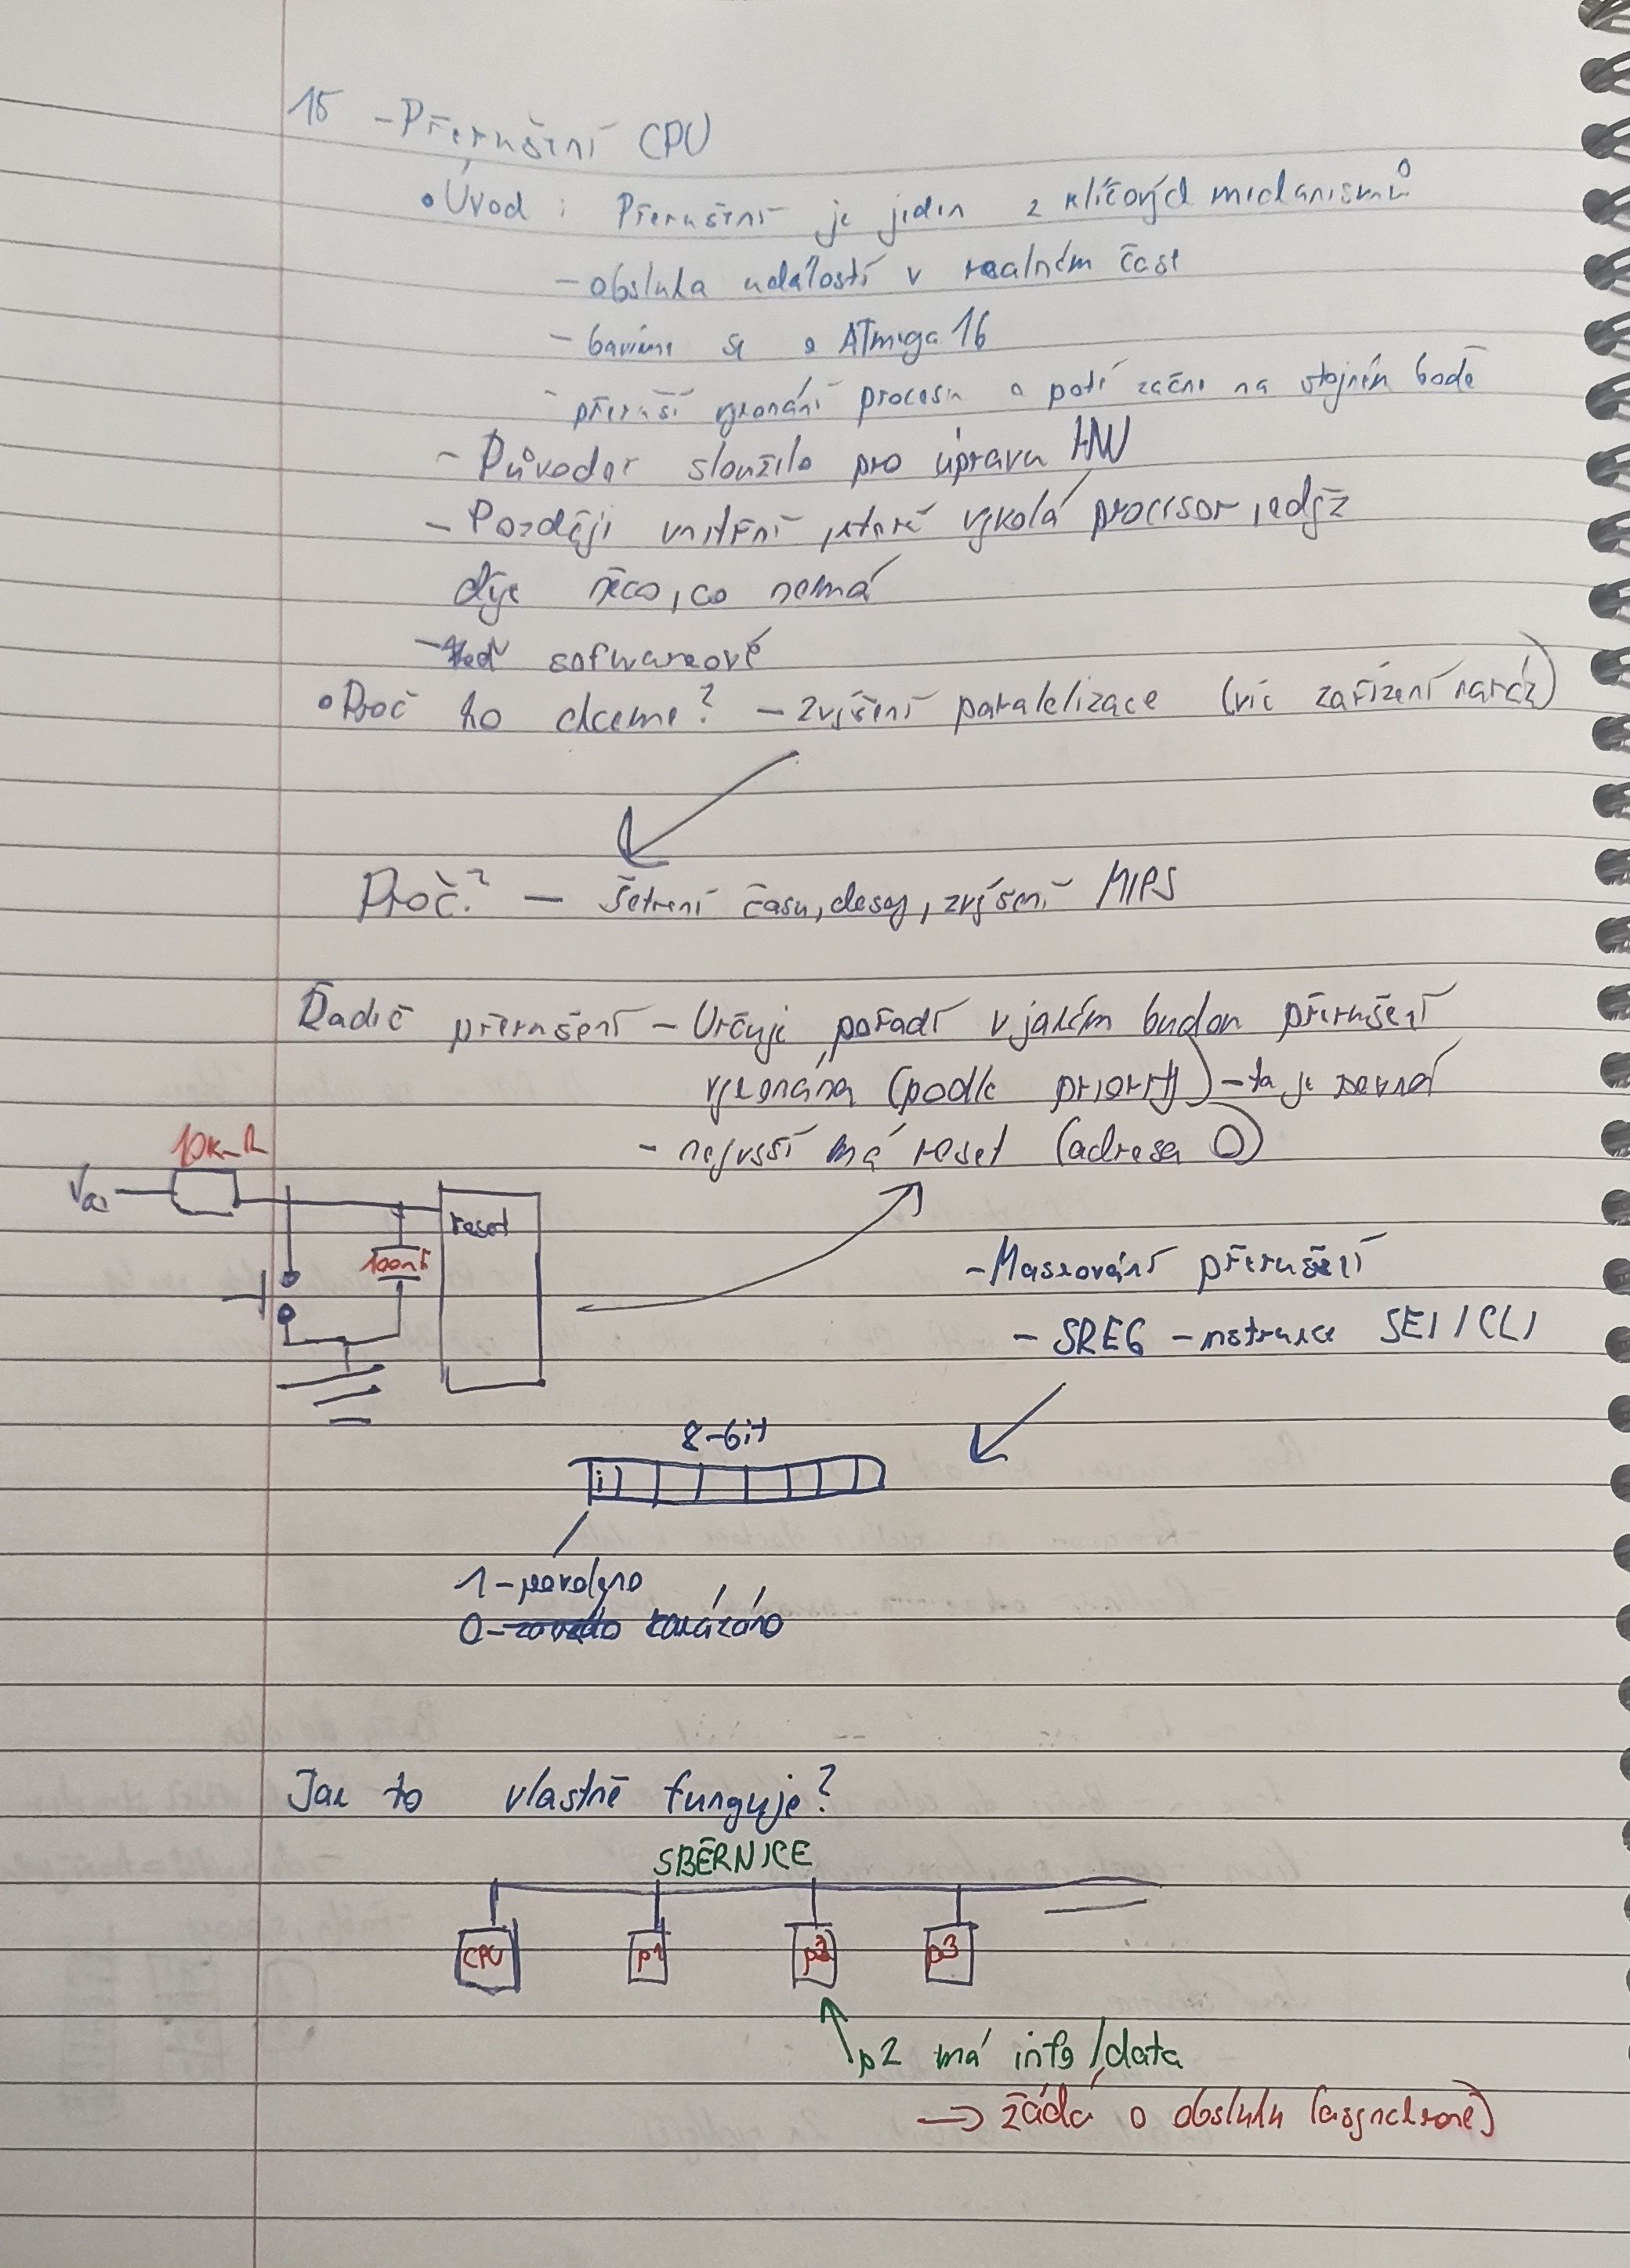 15 - Přerušení CPU
• Úvod : Přerušení je jeden z klíčových mechanismů
- obsluha událostí v reálném čase
- bavíme se o ATmega 16
- přeruší vykonání procesu a poté začne na stejném bodě
- Původně sloužilo pro úpravu HW
- Později vnitřní, které vyvolá procesor, když
děje něco, co nemá
- teď sofwareové
• Proč to chceme? - zvýšení paralelizace (víc zařízení naráz)
Proč? - šetření času, desky, zvýšení MIPS
Řadič přerušení - Určuje pořadí v jakém budou přerušení
vykonána (podle priority) - ta je pevná
- nejvšší má reset (adresa 0)
10k Ω
Vcc
reset
100nF
- Maskování přerušení
- SREG - instrukce SEI / CLI
8-bit
i
1 - povolyno
0 - zakázáno
Jak to vlastně funguje?
SBĚRNICE
CPU p1 p2 p3
p2 má info/data
→ žádá o obsluhu (asynchroně)